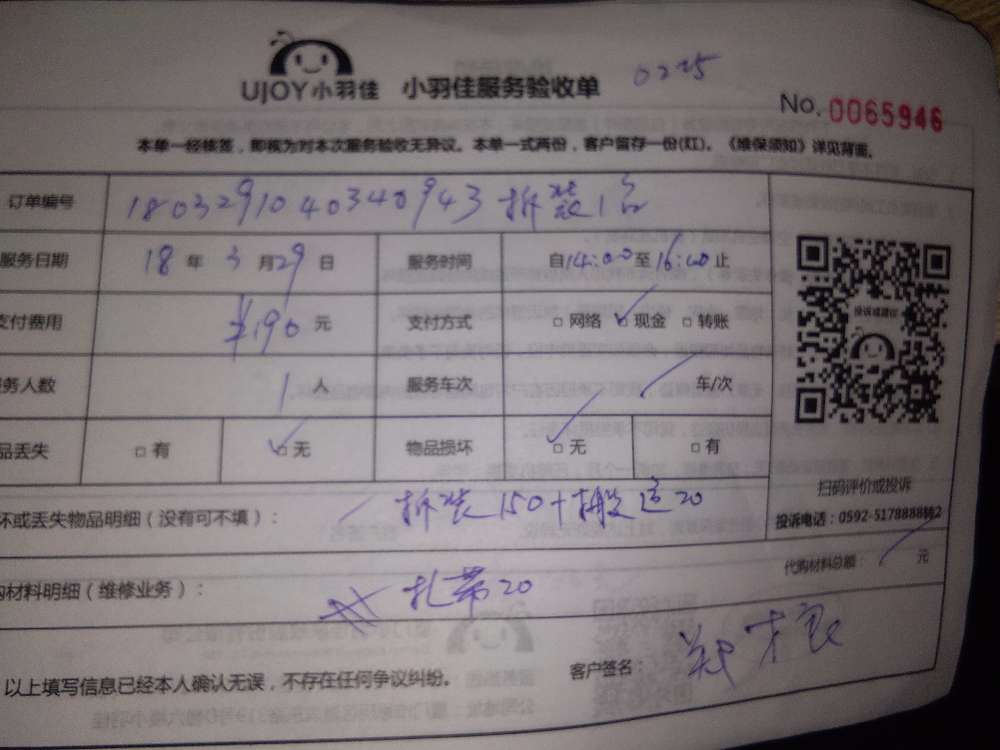 UJOY小羽佳 小羽佳服务验收单 0225
No. 0065946
本单一经核签，即视为对本次服务验收无异议。本单一式两份，客户留存一份(红)。《维保须知》详见背面。
订单编号 1803291040340943 拆装1台
服务日期 18 年 3 月 29 日 服务时间 自14:00至16:00止
支付费用 ¥190 元 支付方式 □网络 ✓现金 □转账
务人数 1 人 服务车次 / 车/次
品丢失 □有 ☑无 物品损坏 ☑无 □有
投诉或建议
扫码评价或投诉
投诉电话：0592-5178888转2
坏或丢失物品明细（没有可不填）： / 拆装150+搬运20
代购材料总额： / 元
购材料明细（维修业务）： 扎带20
以上填写信息已经本人确认无误，不存在任何争议纠纷。 客户签名：